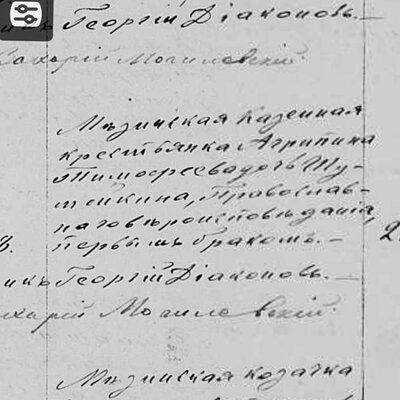 икъ Георгій Діаконовъ. —
Захарій Могилевскій.
Мѣзинская казенная
крестьянка Агрипина
Тимофеева дочь Шу-
тейкина, Православ-
наго вѣроисповѣданія,
3. первымъ бракомъ. — 2
икъ Георгій Діаконовъ. —
харій Могилевскій.
Мѣзинская козачка